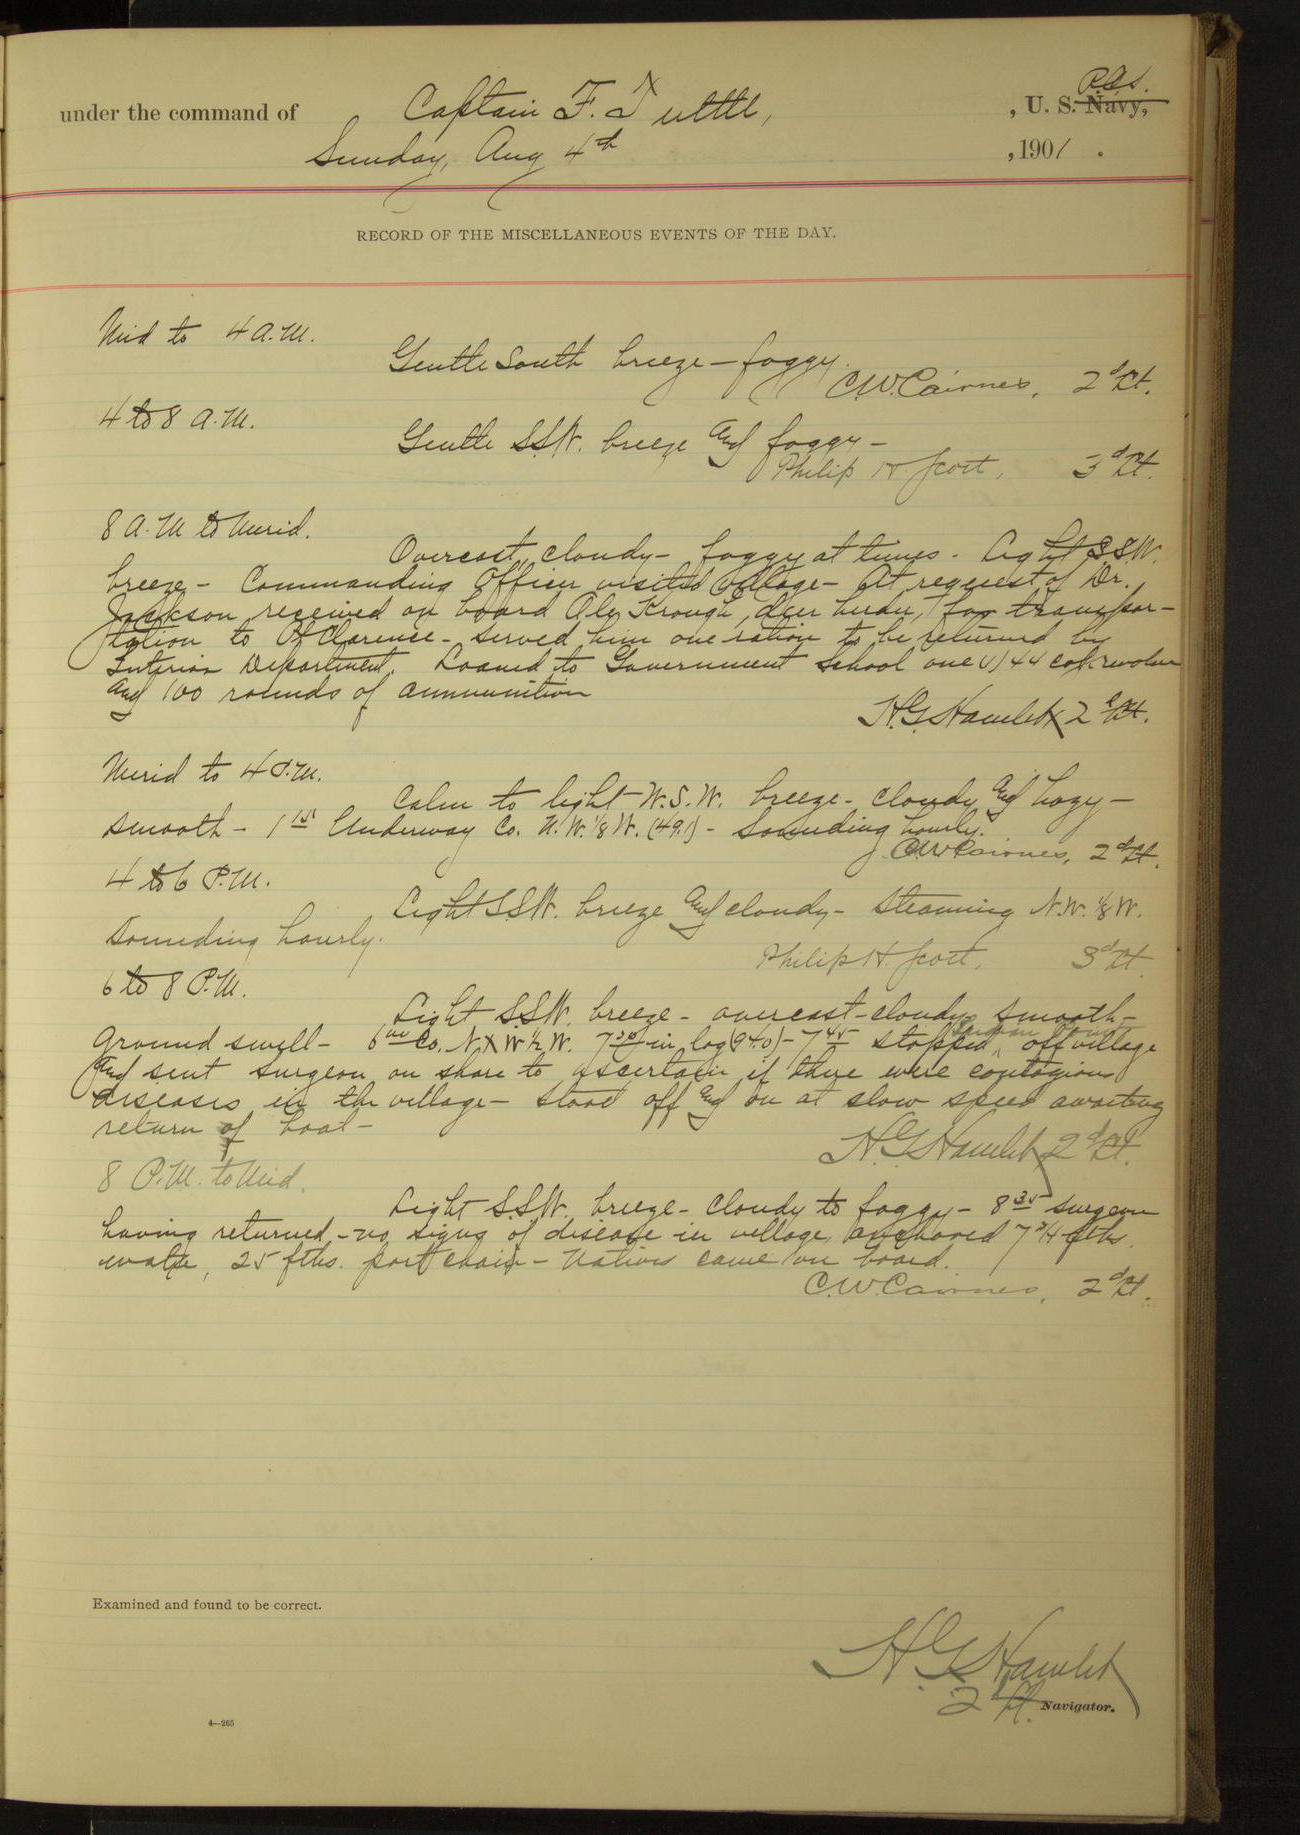 under the command of Captain F. Tuttle, , U. S. Navy, R.C.S.
Sunday, Aug 4th , 1901 .
RECORD OF THE MISCELLANEOUS EVENTS OF THE DAY.
Mid to 4 A.M.
Gentle South breeze - foggy.
C.W. Cairnes, 2d Lt.
4 to 8 A.M.
Gentle S.S.W. breeze and foggy -
Philip H. Scott, 3d Lt.
8 A.M to Merid.
Overcast, cloudy - foggy at times - Light S.S.W.
breeze - Commanding Officer visited village - At request of Dr.
Jackson received on board Ole Krough, deer herder, for transpor-
tation to Pt Clarence - served him one ration to be returned by
Interior Department. Loaned to Government School one (1) 44 cal. revolver
and 100 rounds of ammunition
H.G. Hamlet 2d Lt.
Merid to 4 P.M.
Calm to light W.S.W. breeze - cloudy and hazy -
smooth - 1 15 Underway Co. N.W. 1/8 W. (49.1) - Sounding hourly.
C.W. Cairnes, 2d Lt.
4 to 6 P.M.
Light S.S.W. breeze and cloudy - Steaming N.W. 1/8 W.
Sounding hourly.
Philip H. Scott, 3d Lt.
6 to 8 P.M.
Light S.S.W. breeze - overcast - cloudy smooth -
Ground swell - 6 00 Co. N x W 1/2 W. 7 30 in log (94.0) - 7 45 stopped off village
and sent surgeon on shore to ascertain if there were contagious
diseases in the village - Stood off and on at slow speed awaiting
return of boat -
H.G. Hamlet 2d Lt.
8 P.M. to Mid.
Light S.S.W. breeze - Cloudy to foggy - 8 35 surgeon
having returned - no signs of disease in village, anchored 7 3/4 fths.
water, 25 fths. port chain - Natives came on board.
C.W. Cairnes, 2d Lt.
Examined and found to be correct.
H G Hamlet
2d Lt. Navigator.
4—265